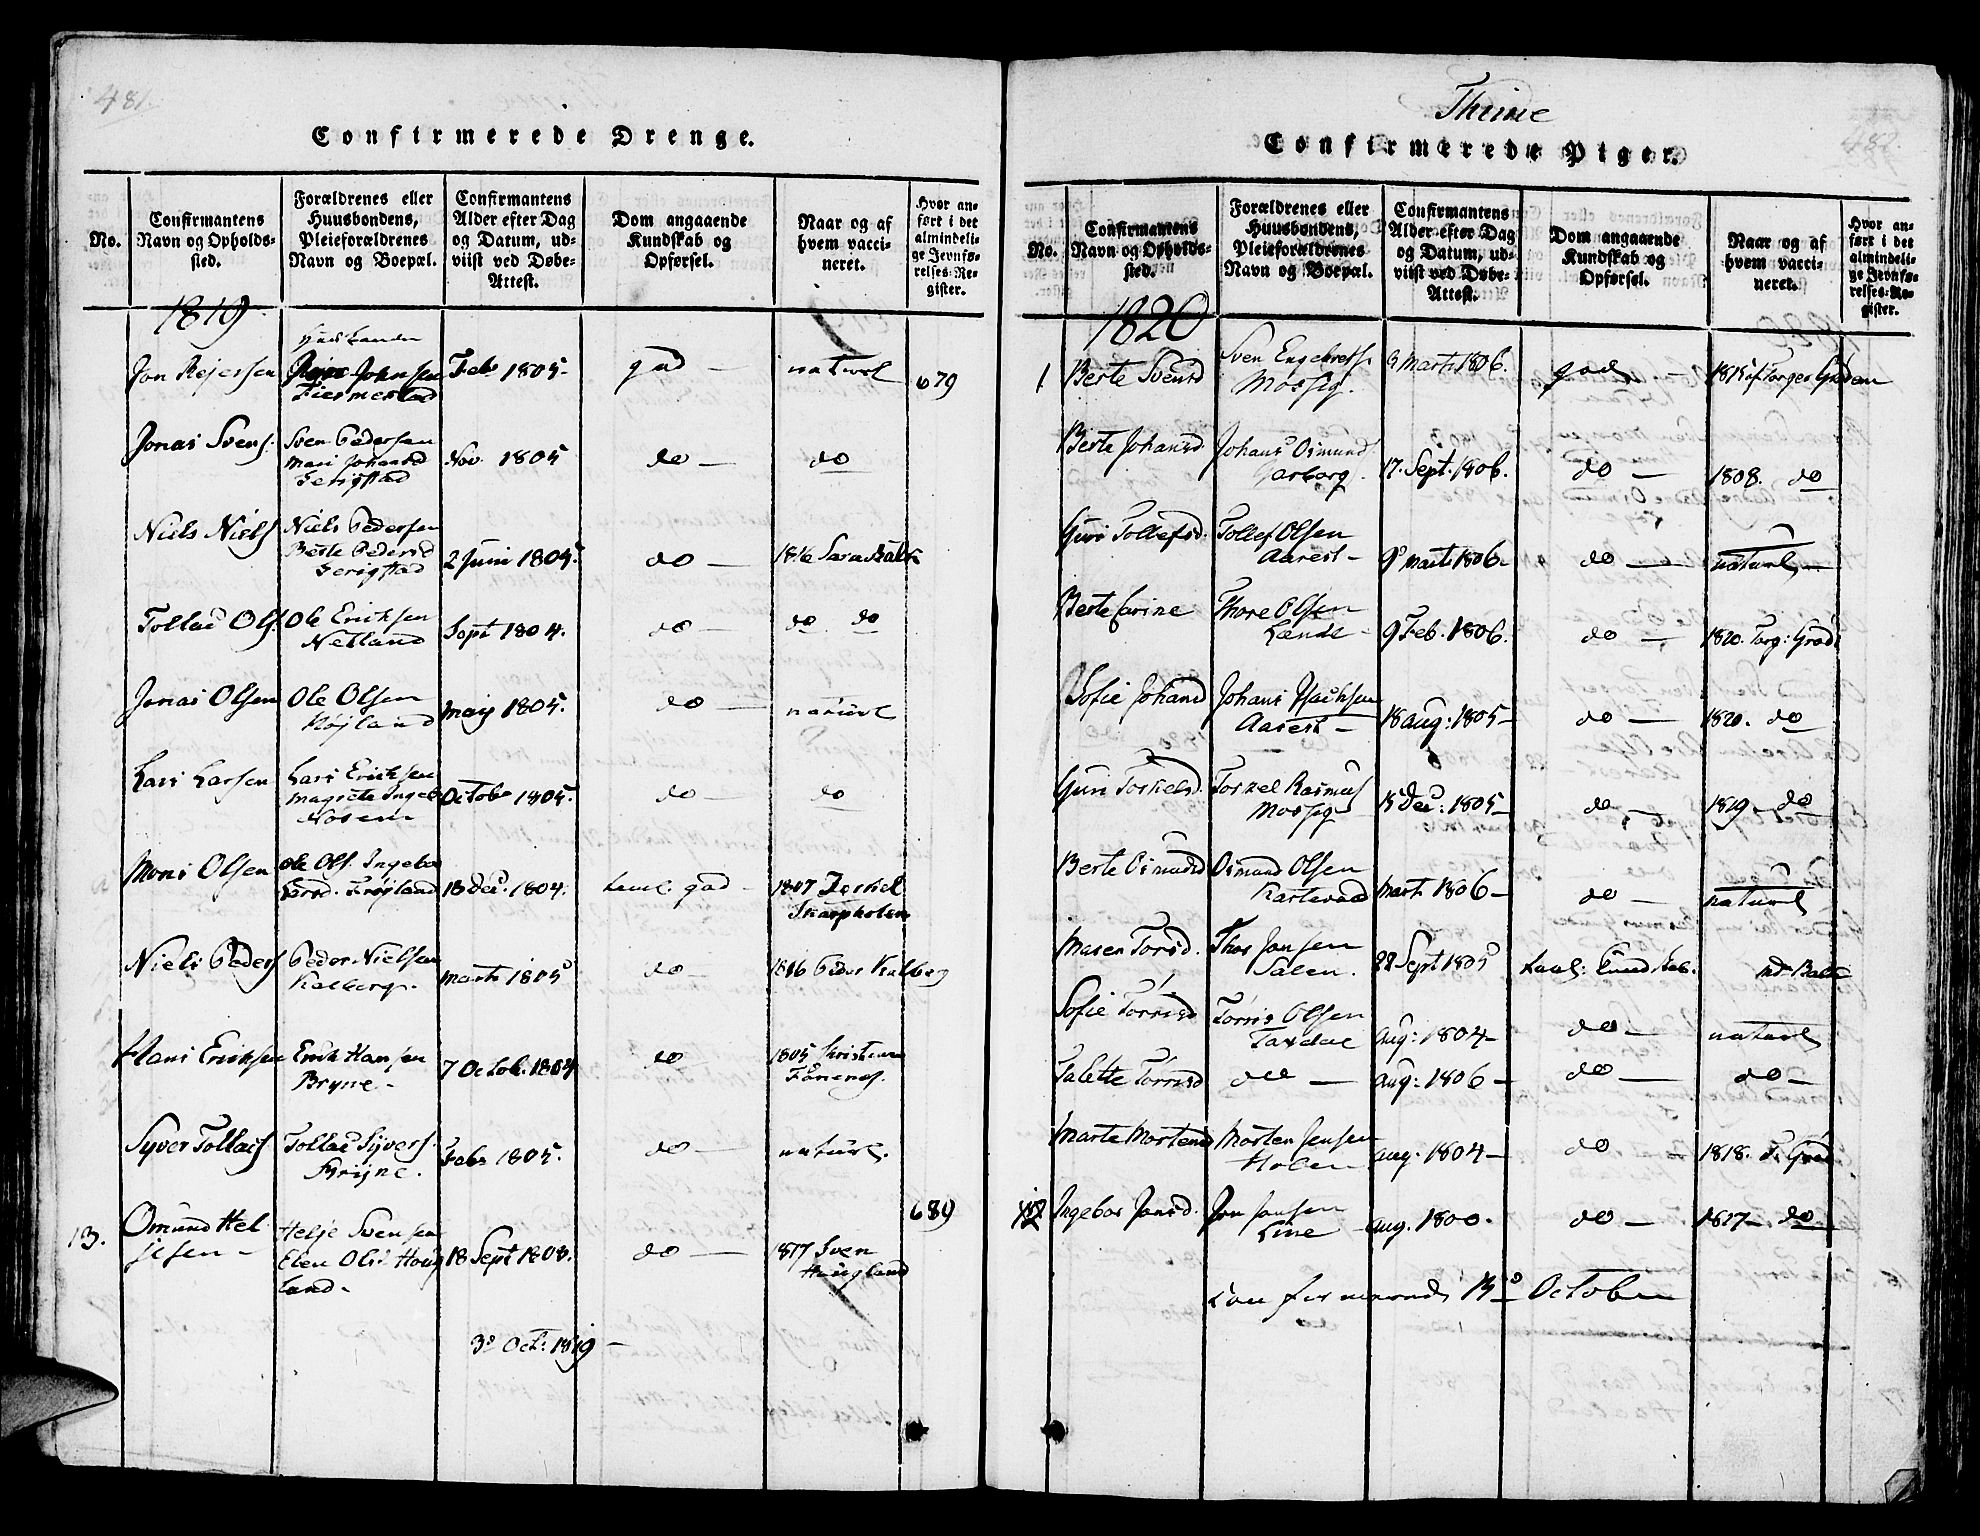 481.
Confirmerede Drenge.
No.
Confirmantens Navn og Opholdssted.
Forældrenes eller Huusbondens, Pleieforældrenes Navn og Boepæl.
Confirmantens Alder efter Dag og Datum, udviist ved Døbe-Attest.
Dom angaaende Kundskab og Opførsel.
Naar og af hvem vaccineret.
Hvor anført i det almindelige Jevnførelses-Register.
1819
Jon Rejersen Johnsen Feb 1805 - god - naturl 679
Jonas Svens. Sven Pedersen
Mari Johansd Nov. 1805 do - do
Serigstad
Niels Niels Niels Pedersen
Berte Pedersd 2 Juni 1805. do - 1816
Serigstad
Tollac Ols. Ole Eriksen
Netland Sept 1804. do - do do
Jonas Olsen Ole Olsen
Højland Maij 1805. do - naturl
Lars Larsen Lars Eriksen
Magrete Ingeb October 1805. do - do
Nosem
Mons Olsen Ole Ols. Ingebor
Larsd. Frøjland 18 Dec. 1804. taal. god - 1807 Torkel
Niels Peders Peder Nielsen
Kalberg. Marts 1805 do - 1816 Peder Kalberg
Hans Eriksen Erik Hansen
Bryne - 7 Octob. 1804 do 1805 Kristian
Syver Tollacs Tollac Syvers.
Bryne. Feb 1805. do - naturl.
13. Omund Hel
jesen - Helje Svensen
Elen Olsd Houg
land - 18 Sept 1803. do - 1817 Sven
Hougland 689
3. Oct: 1819 -
Thime
482.
Confirmerede Piger.
No.
Confirmantens Navn og Opholdssted.
Forældrenes eller Huusbondens, Pleieforældrenes Navn og Boepæl.
Confirmantens Alder efter Dag og Datum, udviist ved Døbe-Attest.
Dom angaaende Kundskab og Opførsel.
Naar og af hvem vaccineret.
Hvor anført i det almindelige Jevnførelses-Register.
1820
1 Berte Svensd Sven Engebrets
Mossig. 3 Marts 1806. god
Berte Johansd Johans Osmund
17. Sept. 1806. do - 1808. do
Guri Tollefsd. Tollef Olsen
Aarest - 9 Marts 1806 - do - naturl -
Berte Carine Thore Olsen
Lende - 9 Feb. 1806. do - 1820. Torg: Grød
Sofie Johansd Johans Isachsen
Aarest - 18 Aug: 1805 - do - 1820. do
Guri Torkelsd. Torkel Rasmus
Mossige 15 Dec: 1805 - do - 1819 - do
Berte Osmundsd Osmund Olsen
Kartevold Marts 1806 - do - naturl
Maren Torsd. Thor Jonsen
Salen. 28 Sept 1805 taal: Kundskab.
Sofie Tørrisd Tørris Olsen
Taxdal Aug: 1804 - do - naturl
Talette Tørrisd do - Aug: 1806 - do - do -
Marte Mortensd Morten Jensen
Holen Aug. 1804 - do - 1818. T. Grød
12 Ingebor Jonsd. Jon Jonsen
Line - Aug. 1800. do - 1817 - do
Confirmerede 15 October